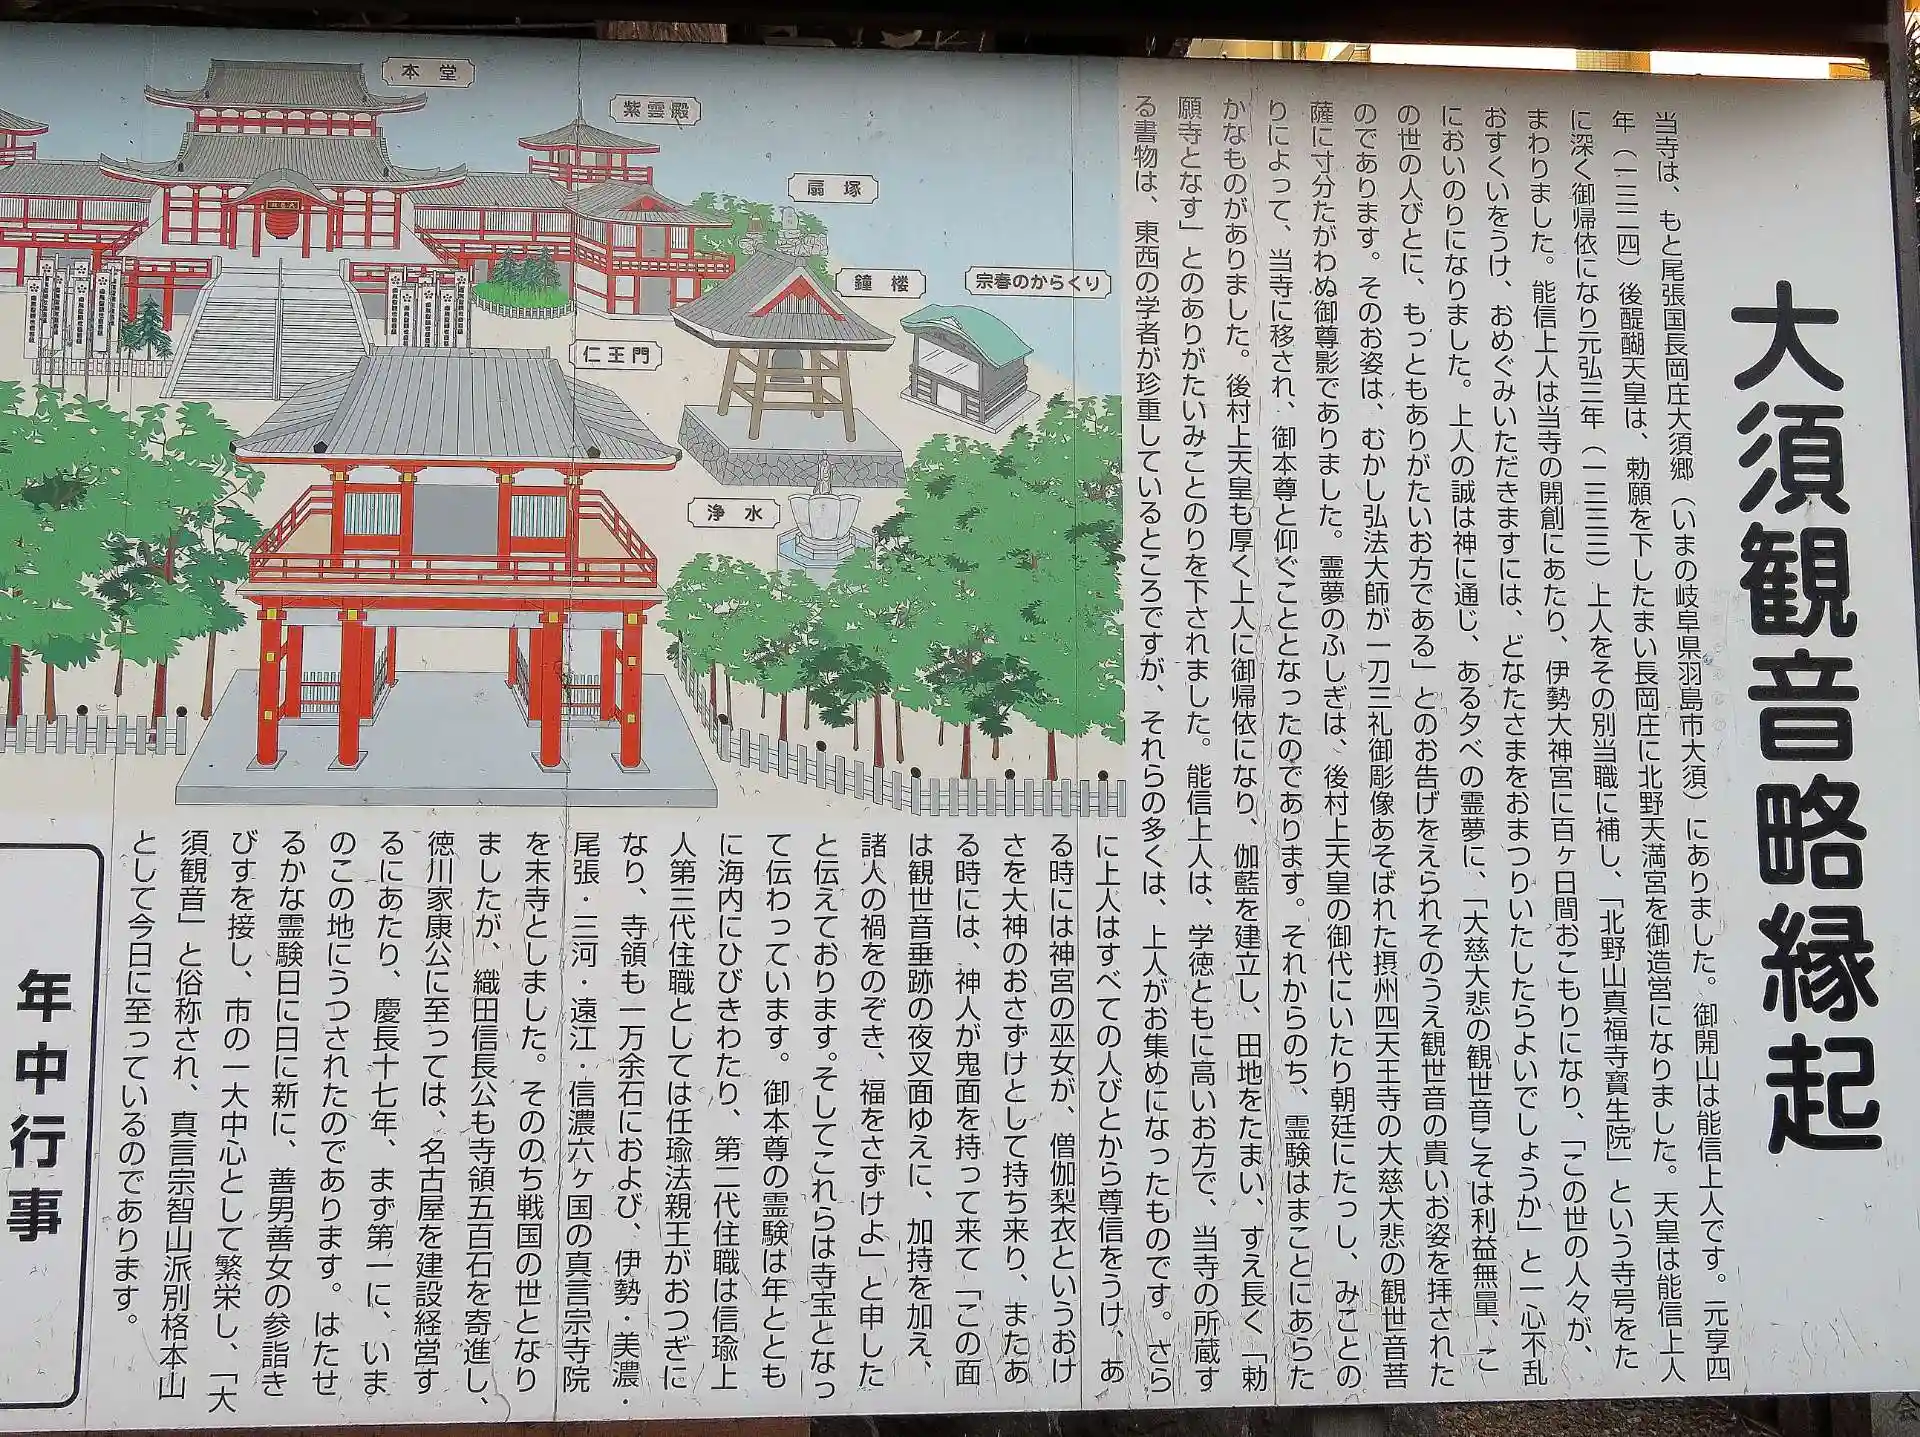 大須観音略縁起
当寺は、もと尾張国長岡庄大須郷（いまの岐阜県羽島市大須）にありました。御開山は能信上人です。元享四
年（一三二四）後醍醐天皇は、勅願を下したまい長岡庄に北野天満宮を御造営になりました。天皇は能信上人
に深く御帰依になり元弘三年（一三三三）上人をその別当職に補し、「北野山真福寺寶生院」という寺号をた
まわりました。能信上人は当寺の開創にあたり、伊勢大神宮に百ヶ日間おこもりになり、「この世の人々が、
おすくいをうけ、おめぐみいただきますには、どなたさまをおまつりいたしたらよいでしょうか」と一心不乱
においのりになりました。上人の誠は神に通じ、ある夕べの霊夢に、「大慈大悲の観世音こそは利益無量、こ
の世の人びとに、もっともありがたいお方である」とのお告げをえられそのうえ観世音の貴いお姿を拝された
のであります。そのお姿は、むかし弘法大師が一刀三礼御彫像あそばれた摂州四天王寺の大慈大悲の観世音菩
薩に寸分たがわぬ御尊影でありました。霊夢のふしぎは、後村上天皇の御代にいたり朝廷にたっし、みことの
りによって、当寺に移され、御本尊と仰ぐこととなったのであります。それからのち、霊験はまことにあらた
かなものがありました。後村上天皇も厚く上人に御帰依になり、伽藍を建立し、田地をたまい、すえ長く「勅
願寺となす」とのありがたいみことのりを下されました。能信上人は、学徳ともに高いお方で、当寺の所蔵す
る書物は、東西の学者が珍重しているところですが、それらの多くは、上人がお集めになったものです。さら
に上人はすべての人びとから尊信をうけ、あ
る時には神宮の巫女が、僧伽梨衣というおけ
さを大神のおさずけとして持ち来り、またあ
る時には、神人が鬼面を持って来て「この面
は観世音垂跡の夜叉面ゆえに、加持を加え、
諸人の禍をのぞき、福をさずけよ」と申した
と伝えております。そしてこれらは寺宝となっ
て伝わっています。御本尊の霊験は年ととも
に海内にひびきわたり、第二代住職は信瑜上
人第三代住職としては任瑜法親王がおつぎに
なり、寺領も一万余石におよび、伊勢・美濃・
尾張・三河・遠江・信濃六ヶ国の真言宗寺院
を末寺としました。そののち戦国の世となり
ましたが、織田信長公も寺領五百石を寄進し、
徳川家康公に至っては、名古屋を建設経営す
るにあたり、慶長十七年、まず第一に、いま
のこの地にうつされたのであります。はたせ
るかな霊験日に日に新に、善男善女の参詣き
びすを接し、市の一大中心として繁栄し、「大
須観音」と俗称され、真言宗智山派別格本山
として今日に至っているのであります。
本堂
紫雲殿
扇塚
鐘楼
宗春のからくり
仁王門
浄水
年中行事